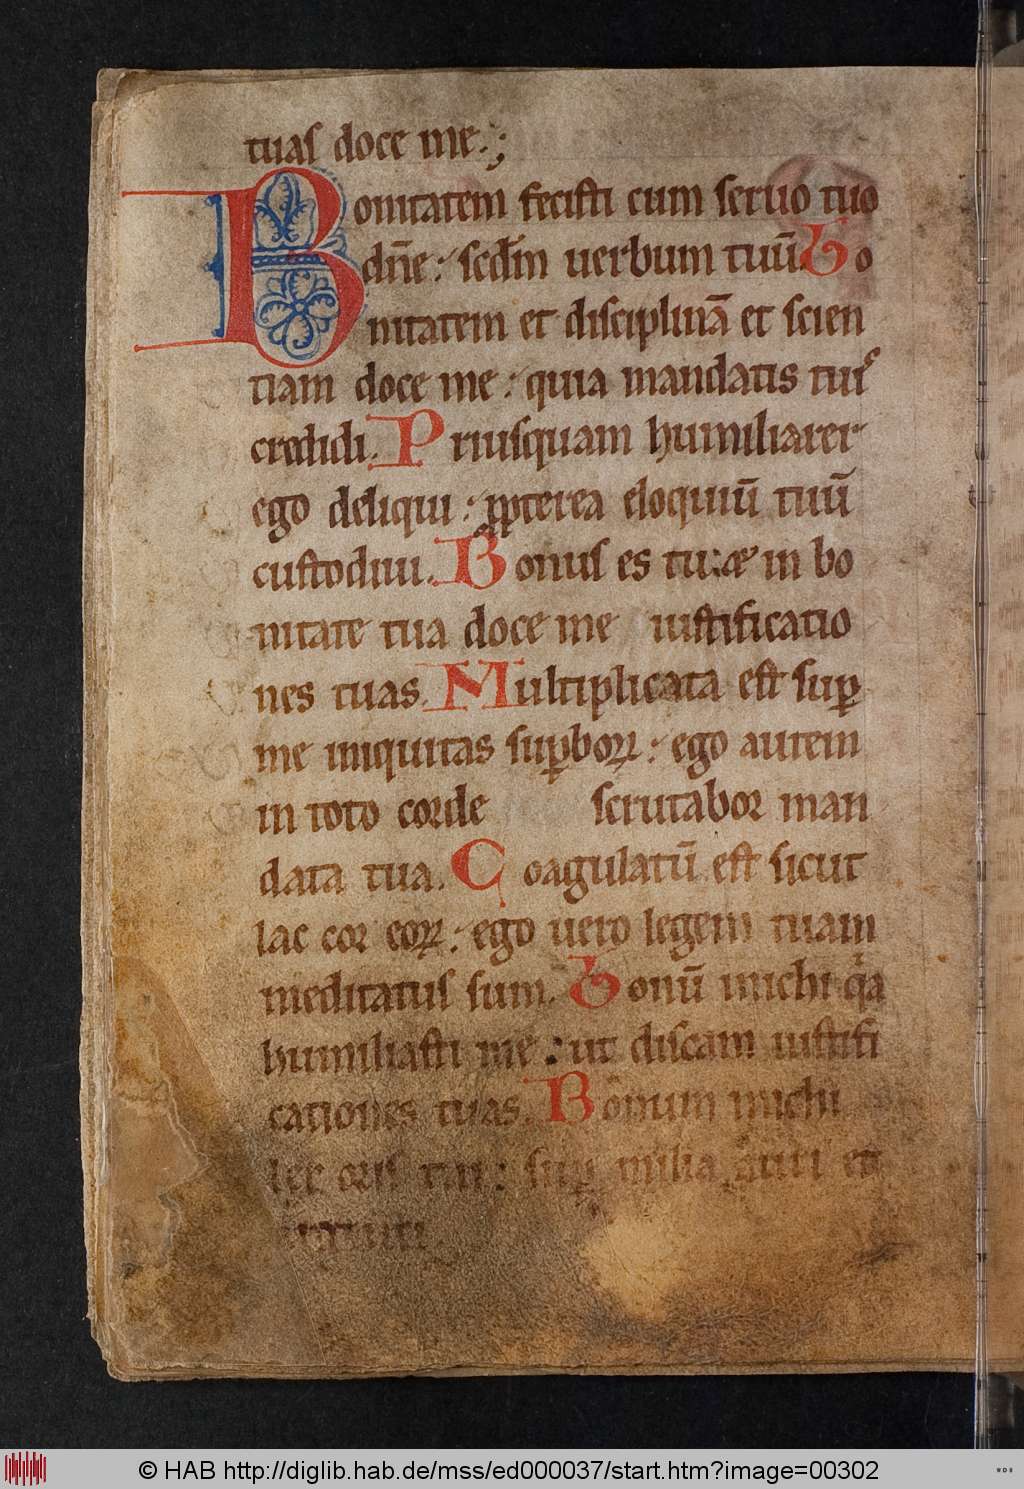 tuas doce me.;
Bonitatem fecisti cum seruo tuo
dn̄e : sed̄m uerbum tuū. Bo
nitatem et disciplinā et scien
tiam doce me : quia mandatis tuis
credidi. Priusquam humiliarer
ego deliqui : ꝓpterea eloquiū tuū
custodiui. Bonus es tu: & in bo
nitate tua doce me iustificatio
nes tuas. Multiplicata est suꝑ
me iniquitas suꝑboꝝ : ego autem
in toto corde scrutabor man
data tua. Coagulatū est sicut
lac cor eoꝝ : ego uero legem tuam
meditatus sum. Bonū michi qͥa
humiliasti me : ut discam iustifi
cationes tuas. Bonum michi
lex oris tui : suꝑ milia auri et
argenti
© HAB http://diglib.hab.de/mss/ed000037/start.htm?image=00302